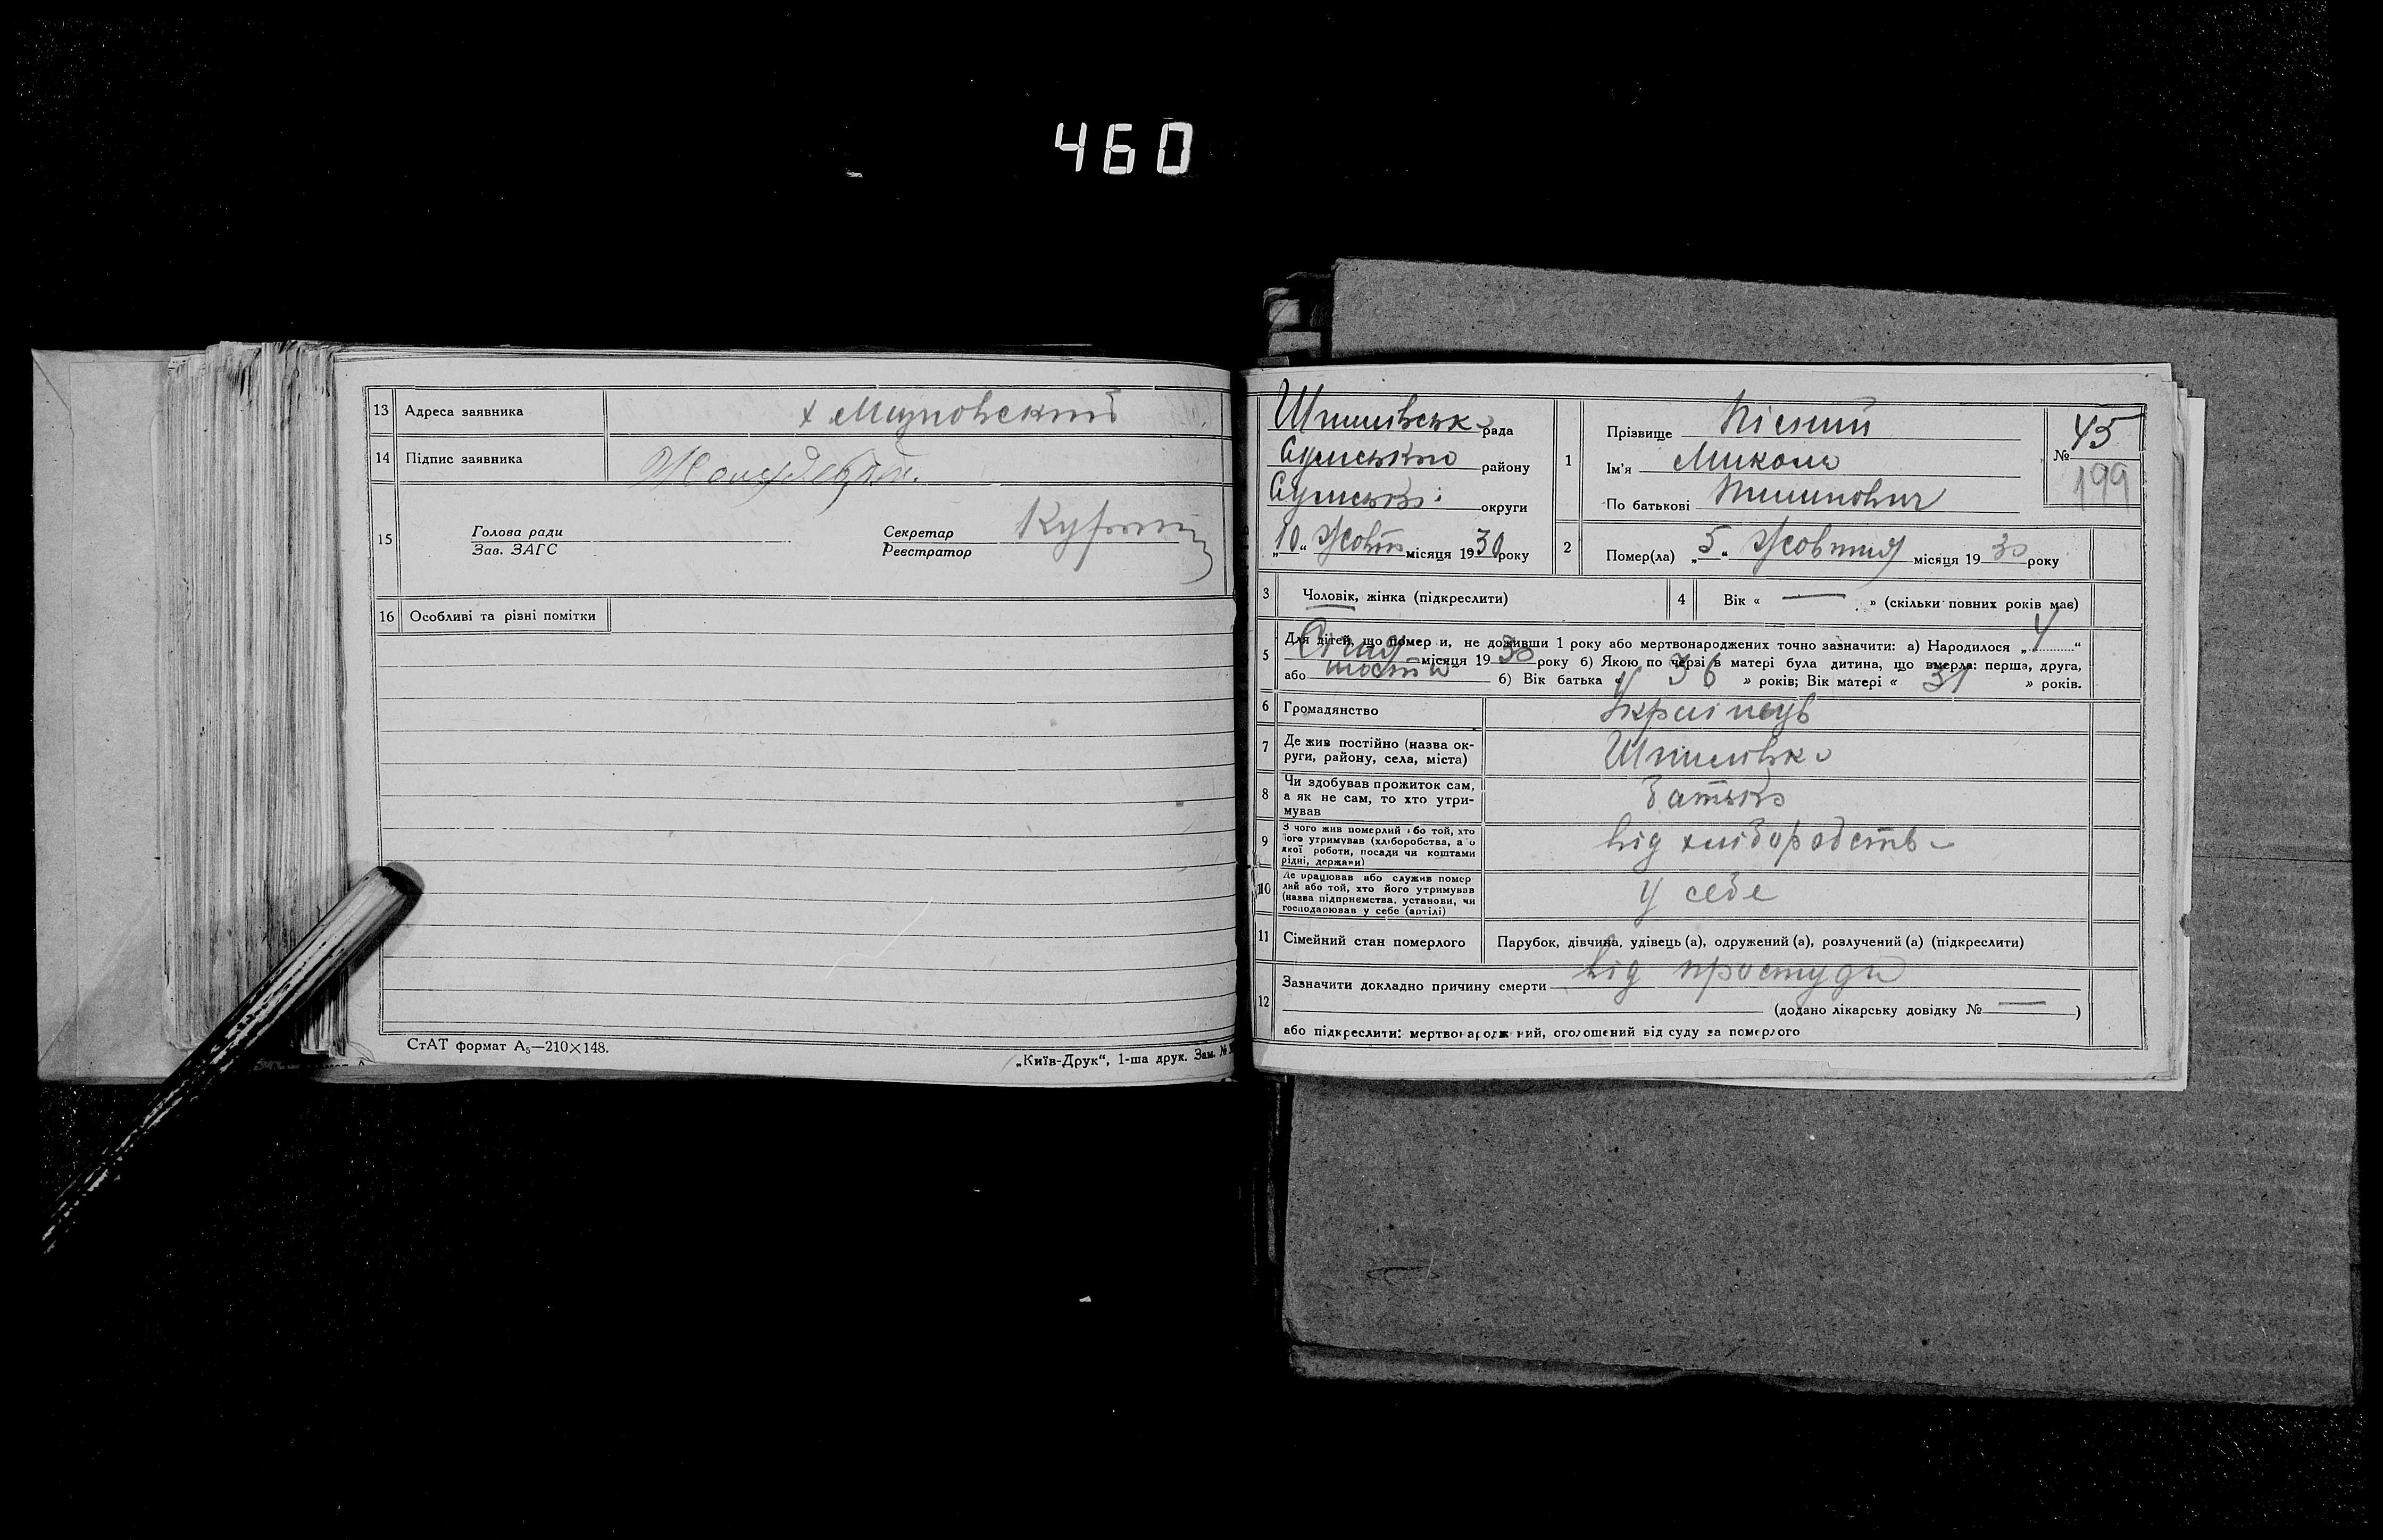 460
13 Адреса заявника х Миповский
14 Підпис заявника
15 Голова ради
Зав. ЗАГС
Секретар
Реєстратор
16 Особливі та різні помітки
СтАТ формат А₅—210×148.
„Київ-Друк“, 1-ша друк. Зам. №
Шпилівська рада
Сумського району
Сумської округи
„10“ Жовтн місяця 1930 року
1 Прізвище Пісний
Ім'я Микола
По батькові Пилипович
№ 45
199
2 Помер(ла) „5“ Жовтня місяця 1930 року
3 Чоловік, жінка (підкреслити)
4 Вік « — » (скільки повних років має)
5 Для дітей, що померли, не доживши 1 року або мертвонароджених точно зазначити: а) Народилося „4“
Січня місяця 1930 року б) Якою по черзі в матері була дитина, що вмерла: перша, друга,
або шоста б) Вік батька « 36 » років; Вік матері « 31 » років.
6 Громадянство Українець
7 Де жив постійно (назва ок-
руги, району, села, міста) Шпилівка
8 Чи здобував прожиток сам,
а як не сам, то хто утри-
мував батько
9 З чого жив померлий або той, хто
його утримував (хліборобства, а о
якої роботи, посади чи коштами
рідні, держави) від хліборобства
10 Де працював або служив помер
лий або той, хто його утримував
(назва підприємства, установи, чи
господарював у себе (артілі) У себе
11 Сімейний стан померлого Парубок, дівчина, удівець (а), одружений (а), розлучений (а) (підкреслити)
12 Зазначити докладно причину смерти від простуди
(додано лікарську довідку № — )
або підкреслити: мертвонароджений, оголошений від суду за померлого